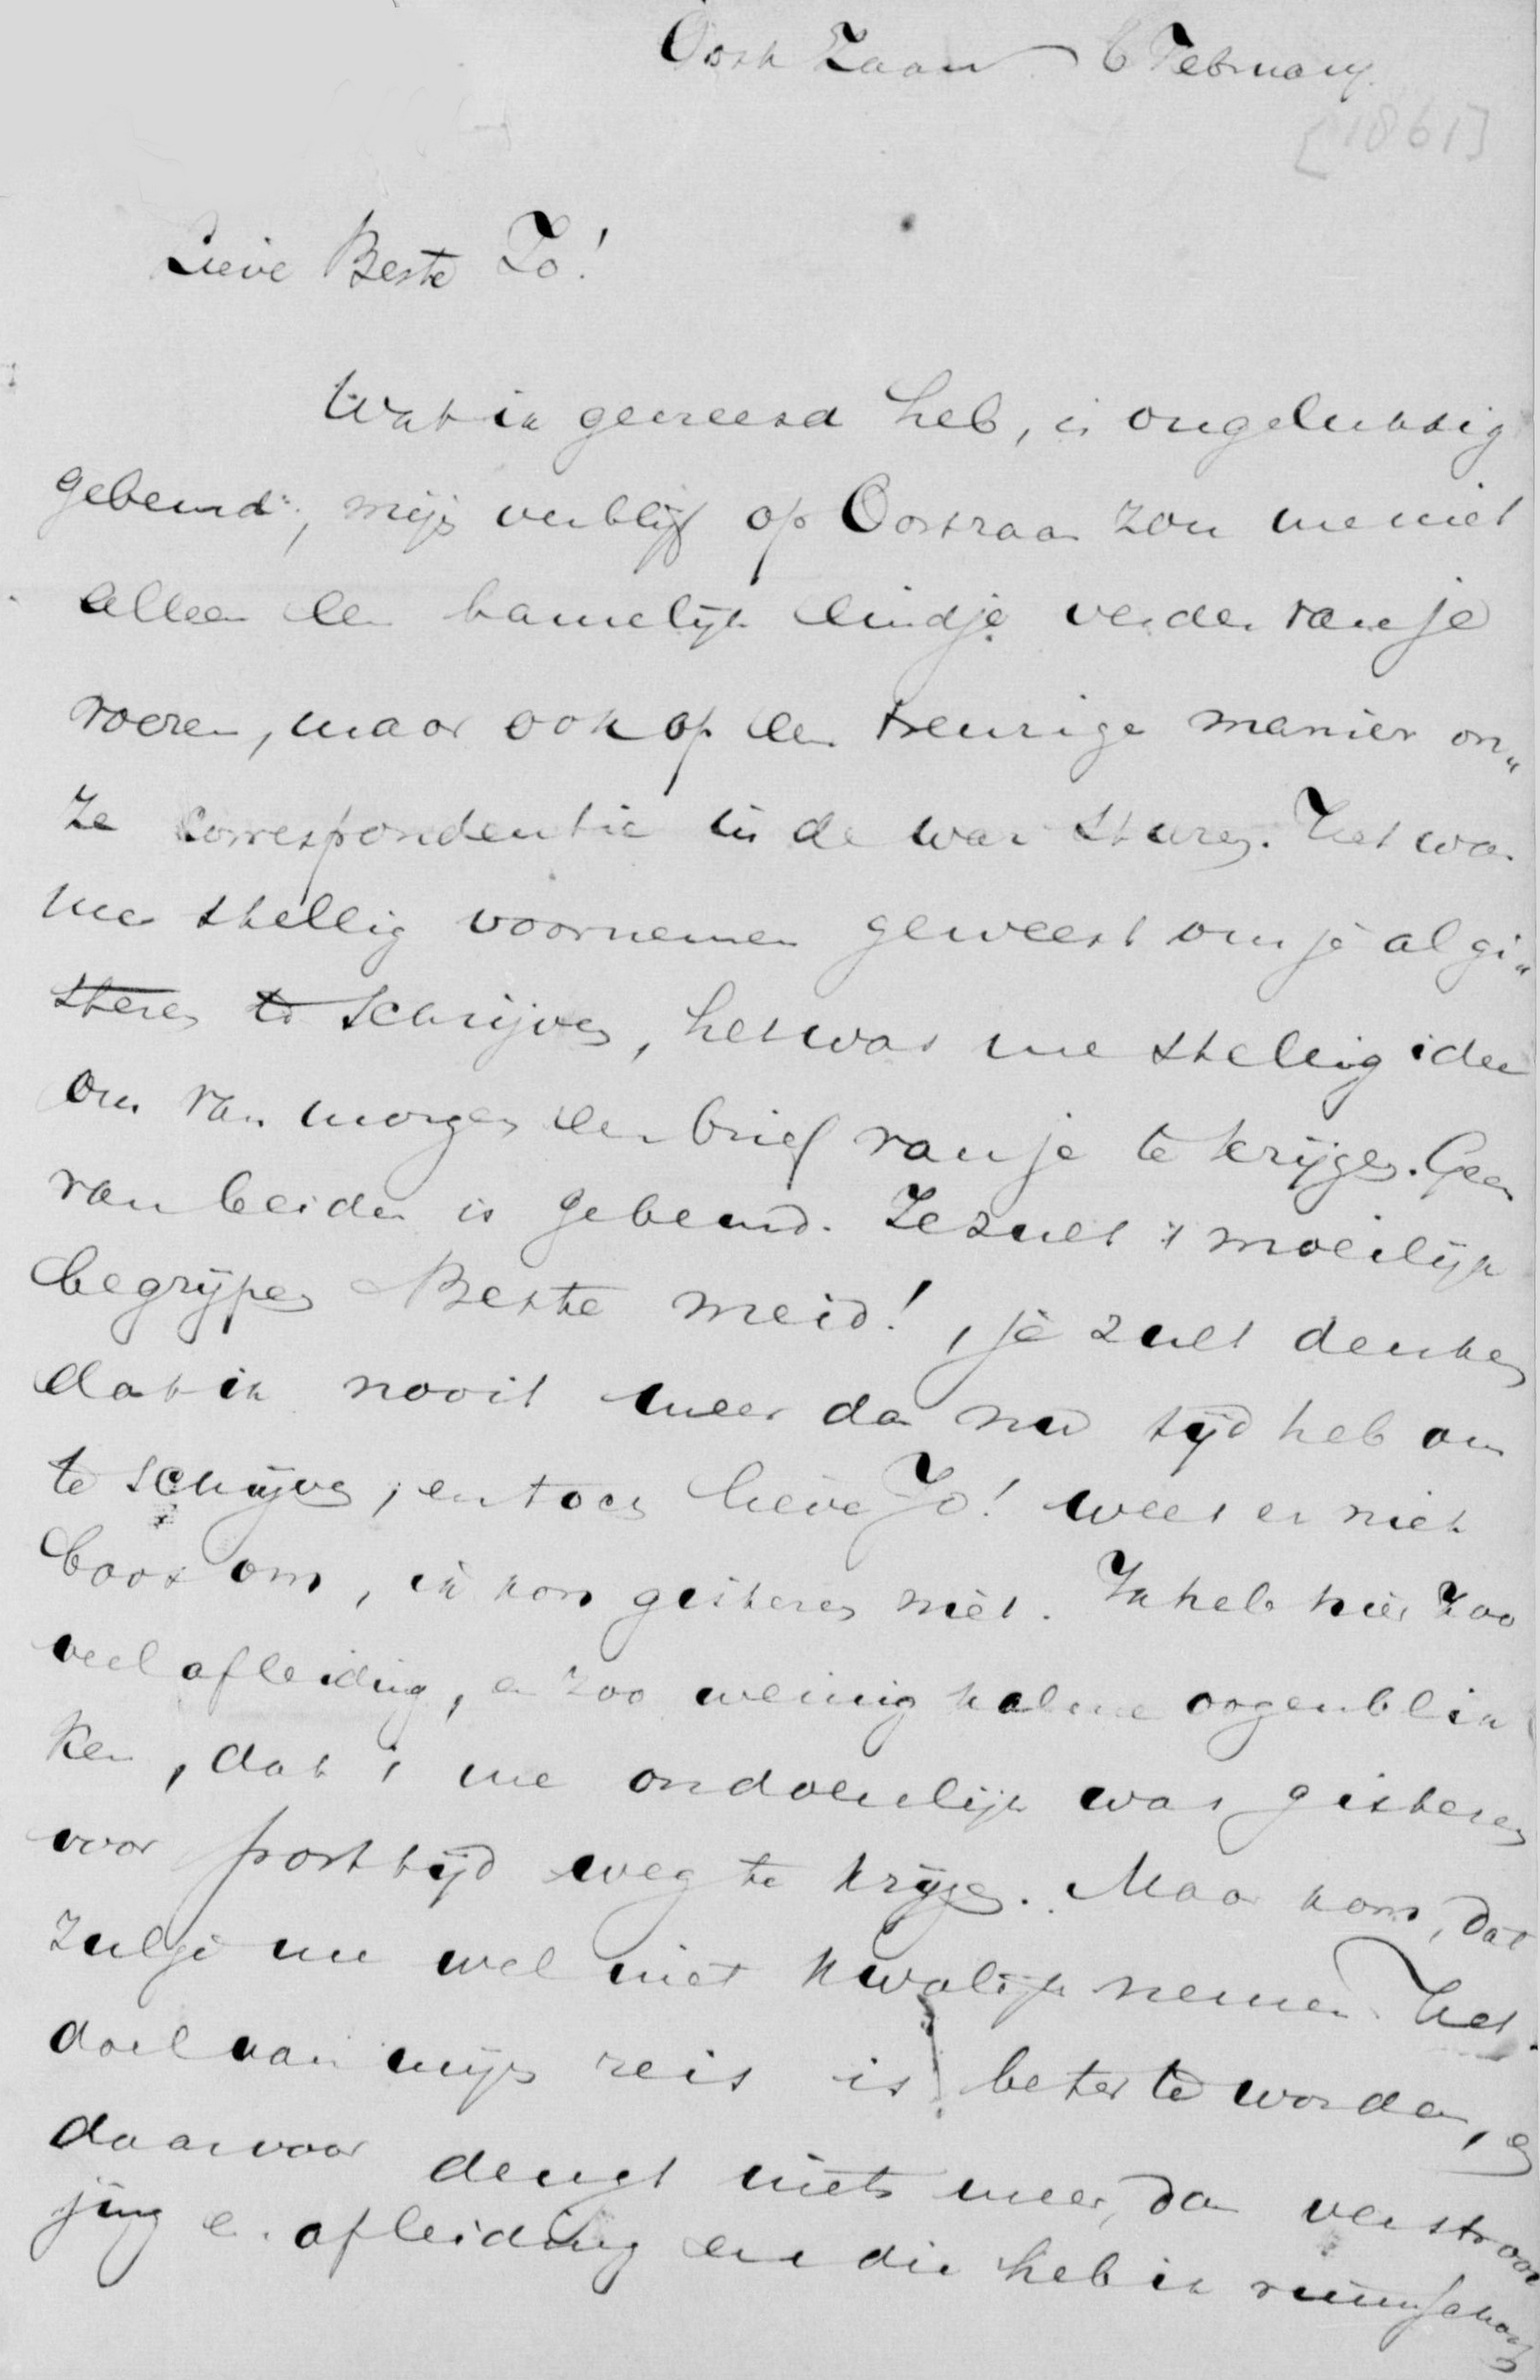 Oost Zaan 6 February.
[1861]
Lieve Beste Jo!
Wat ik gevreesd heb, is ongelukkig
gebeurd; mijn verblijf op Oostzaan zou me niet
alleen een tamelijk eindje verder van je
voeren, maar ook op een treurige manier on„
ze correspondentie in de war sturen. Het was
me stellig voornemen geweest om je al gi„
steren te schrijven, het was me stellig idee
om van morgen een brief van je te krijgen. Geen
van beiden is gebeurd. Je zult 't moeilijk
begrijpen Beste meid!, je zult denken
dat ik nooit meer dan nu tijd heb om
te schrijven, en toch lieve Jo! wees er niet
boos om, ik kon gisteren niet. Ik heb hier zoo
veel afleiding, en zoo weinig kalme oogenblik
ken, dat 't me ondoenlijk was gisteren
voor posttijd weg te krijgen. Maar kom, dat
zulje me wel niet kwalijk nemen. Het
doel van mijn reis is beter te worden, en
daarvoor deugt niets meer, dan verstrooi
jing en afleiding en die heb ik ruimschoots